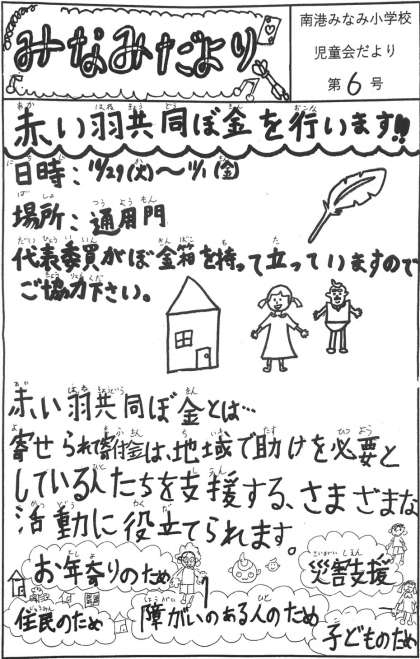 みなみだより
南港みなみ小学校
児童会だより
第6号
赤い羽共同ぼ金を行います!!
日時:10/29(火)～11/1(金)
場所:通用門
代表委員がぼ金箱を持って立っていますので
ご協力下さい。
赤い羽共同ぼ金とは…
寄せられた寄付金は、地域で助けを必要と
している人たちを支援する、さまざまな
活動に役立てられます。
お年寄りのため
災害支援
住民のため
障がいのある人のため
子どものため